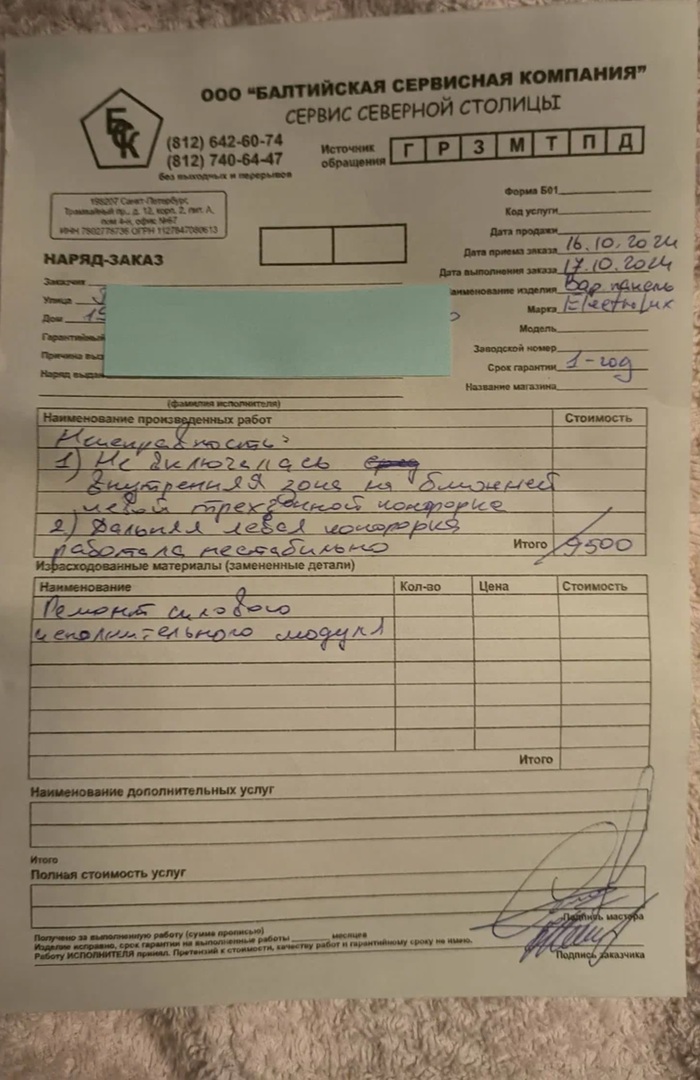 ООО "БАЛТИЙСКАЯ СЕРВИСНАЯ КОМПАНИЯ"
СЕРВИС СЕВЕРНОЙ СТОЛИЦЫ
БСК
(812) 642-60-74
(812) 740-64-47
без выходных и перерывов
Источник обращения
Г Р З М Т П Д
198207 Санкт-Петербург,
Трамвайный пр., д. 12, корп. 2, лит. А,
пом 4-н, офис №67
ИНН 7802778736 ОГРН 1127847080613
Форма Б01
Код услуги
Дата продажи
Дата приема заказа 16.10.2024
Дата выполнения заказа 17.10.2024
Наименование изделия Вар. панель
Марка Electrolux
Модель
Заводской номер
Срок гарантии 1-год
Название магазина
НАРЯД-ЗАКАЗ
Заказчик
Улица
Дом
Гарантийный
Причина выз
Наряд выдан
(фамилия исполнителя)
Наименование произведенных работ Стоимость
Неисправность:
1) Не включалась
внутренняя зона на ближней
левой трехзонной конфорке
2) Дальняя левая конфорка
работала нестабильно Итого 9500
Израсходованные материалы (замененные детали)
Наименование Кол-во Цена Стоимость
Ремонт силового
исполнительного модуля
Итого
Наименование дополнительных услуг
Итого
Полная стоимость услуг
Получено за выполненную работу (сумма прописью)
Изделие исправно, срок гарантии на выполненные работы месяцев
Работу ИСПОЛНИТЕЛЯ принял. Претензий к стоимости, качеству работ и гарантийному сроку не имею.
Подпись мастера
Подпись заказчика